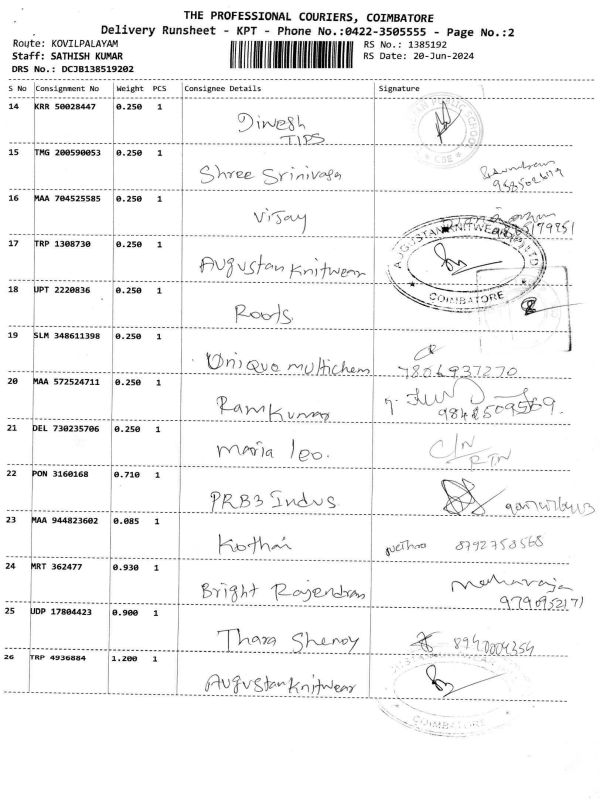 THE PROFESSIONAL COURIERS, COIMBATORE
Delivery Runsheet - KPT - Phone No.:0422-3505555 - Page No.:2
Route: KOVILPALAYAM
RS No.: 1385192
Staff: SATHISH KUMAR
RS Date: 20-Jun-2024
DRS No.: DCJB138519202
S No Consignment No Weight PCS Consignee Details Signature
14 KRR 50028447 0.250 1 Dinesh
TIPS
15 TMG 200590053 0.250 1 Shree Srinivasa
16 MAA 704525585 0.250 1 Vijay
17 TRP 1308730 0.250 1 Augustan Knitwear
AUGUSTAN KNITWEAR
COIMBATORE
18 UPT 2220836 0.250 1 Roots
19 SLM 348611398 0.250 1 Unique multichem
7806937270
20 MAA 572524711 0.250 1 Ram Kumar
21 DEL 730235706 0.250 1 maria leo.
C/N
RTN
22 PON 3160168 0.710 1 PRB3 Indus
23 MAA 944823602 0.085 1 Kothai 8792758568
24 MRT 362477 0.930 1 Bright Rajendran Maharaja
9790952171
25 UDP 17804423 0.900 1 Thara Shenoy 8940004354
26 TRP 4936884 1.200 1 Augustan Knitwear
COIMBATORE